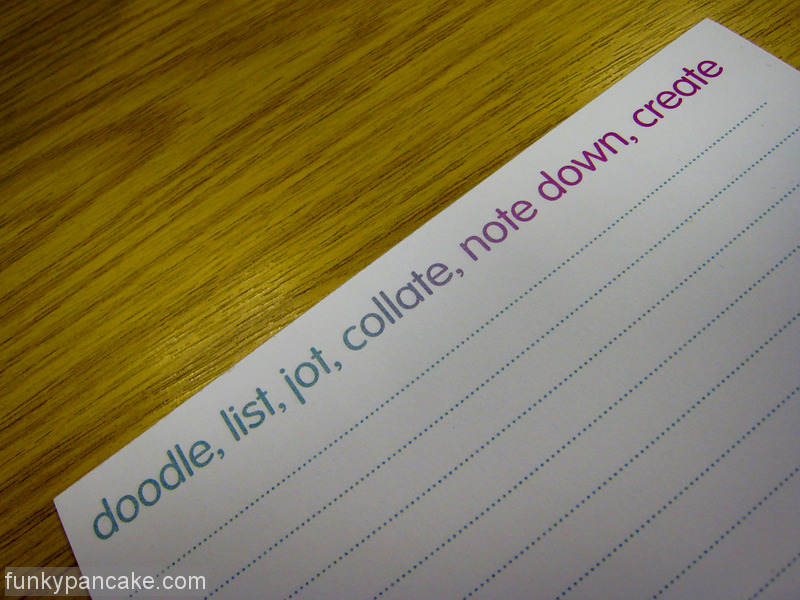 doodle, list, jot, collate, note down, create
funkypancake.com